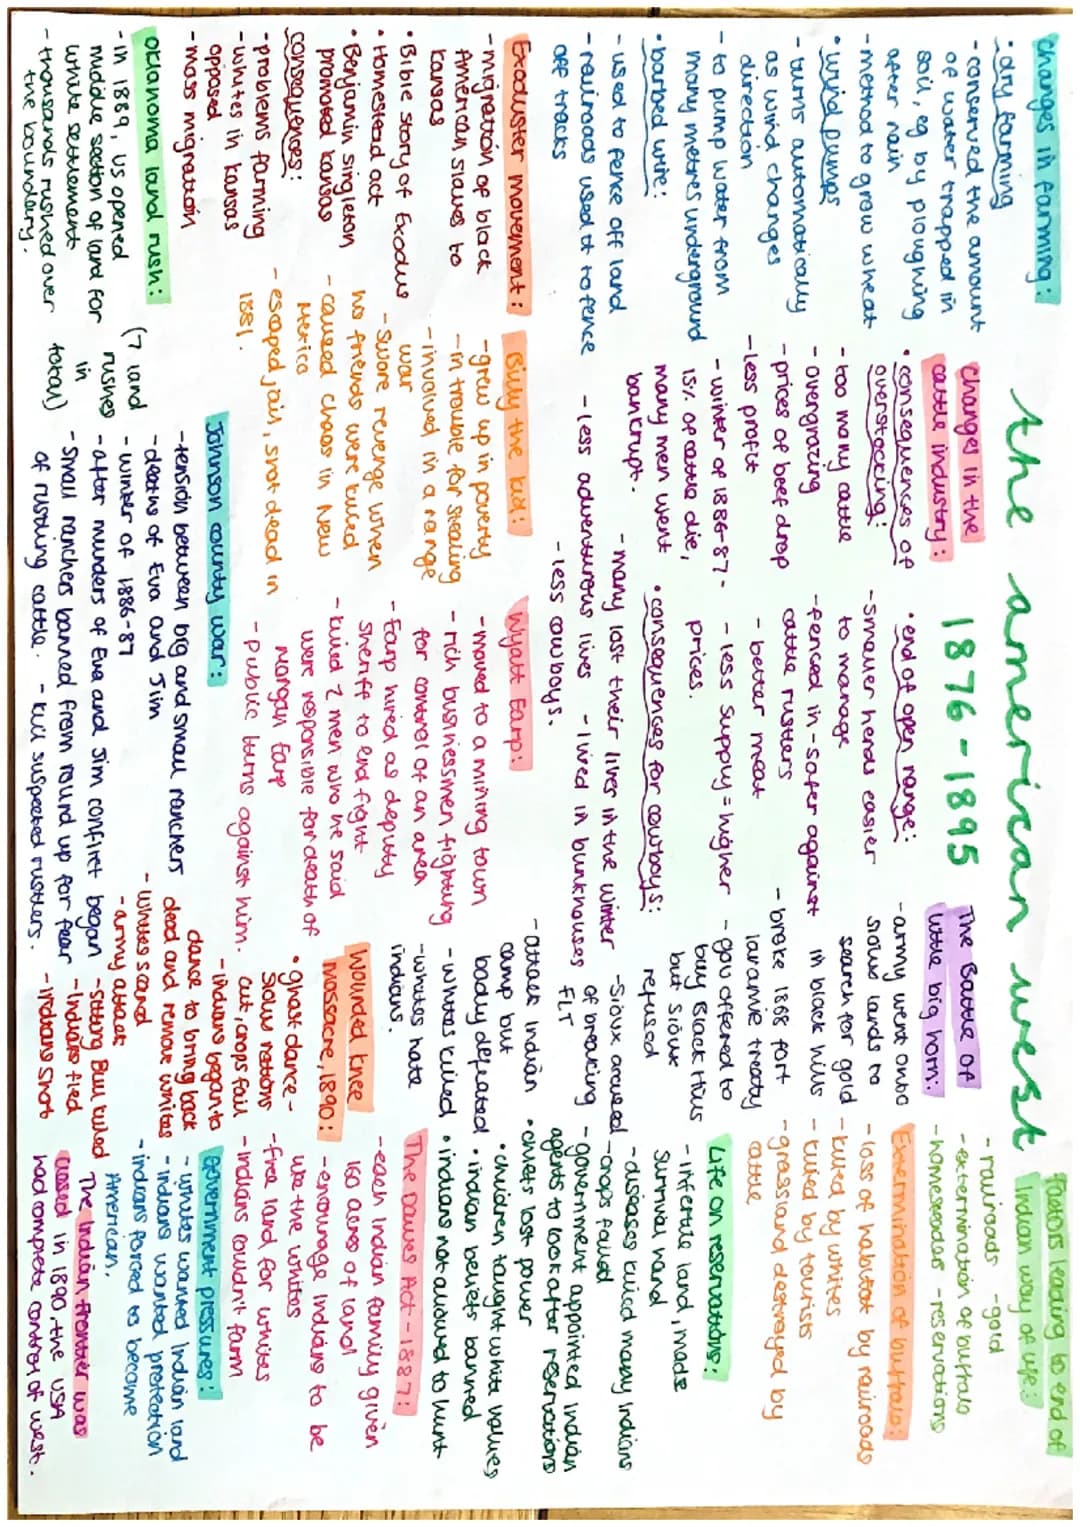 the american west
1876-1895
changes in farming:
• dry farming
- conserved the amount
of water trapped in
soil, eg by ploughing
after rain
- method to grow wheat
• wind pumps
- turns automatically
as wind changes
direction
- to pump water from
many metres underground
• barbed wire:
- used to fence off land
- railroads used it to fence
off tracks
Changes in the
cattle industry:
• consequences of
overstocking:
- too many cattle
- overgrazing
- prices of beef drop
- less profit
- winter of 1886-87 -
15% of cattle die,
many men went
bankrupt.
• end of open range:
- smaller herds easier
to manage
- fenced in - safer against
cattle rustlers
- better meat
- less supply = higher
prices.
• consequences for cowboys:
- many lost their lives in the winter
- less adventurous lives - lived in bunkhouses
- less cowboys.
The Battle of
little big horn:
- army went onto
sioux lands to
search for gold
in black hills
- broke 1868 fort
laramie treaty
- gov offered to
buy Black Hills
but sioux
refused
- Sioux accused
of breaking
FLT
- attack indian
camp but
badly defeated
- whites killed
- whites hate
indians.
factors leading to end of
Indian way of life:
- railroads - gold
- extermination of buffalo
- homesteaders - reservations
Extermination of buffalo:
- loss of habitat by railroads
- killed by whites
- killed by tourists
- grassland destroyed by
cattle
Life on reservations:
- infertile land, made
survival hard
- diseases killed many indians
- crops failed
- government appointed indian
agents to look after reservations
• chiefs lost power
• children taught white values
• indian beliefs banned
• indians not allowed to hunt
Exoduster movement:
- migration of black
American slaves to
Kansas
• Bible story of Exodus
• Homestead act
• Benjamin singleton
promoted kansas
consequences:
- problems farming
- whites in kansas
opposed
- mass migration
Billy the kid:
- grew up in poverty
- in trouble for stealing
- involved in a range
war
- swore revenge when
his friends were killed
- caused chaos in New
Mexico
- escaped jail, shot dead in
1881.
Wyatt Earp:
- moved to a mining town
- rich businessmen fighting
for control of an area
- Earp hired as deputy
sheriff to end fight
- killed 2 men who he said
were responsible for death of
Morgan Earp
- public turns against him.
Wounded knee
massacre, 1890:
• ghost dance -
sioux rations
cut, crops fail
- indians began to
dance to bring back
dead and remove whites
- whites scared
- army attack
- Sitting Bull killed
- Indians fled
- Indians shot
The Dawes Act - 1887:
- each Indian family given
160 acres of land
- encourage Indians to be
like the whites
- free land for whites
- indians couldn't farm
Oklahoma land rush:
- in 1889, US opened
middle section of land for
white settlement
- thousands rushed over
the boundary.
(7 land
rushes
in
total)
Johnson county war:
- tension between big and small ranchers
- deaths of Eva and Jim
- winter of 1886-87
- after murders of Eva and Jim conflict began
- Small ranchers banned from round up for fear
of rustling cattle. - kill suspected rustlers.
Government pressures:
- whites wanted Indian land
- Indians wanted protection
- indians forced to become
American.
The Indian frontier was
closed in 1890, the USA
had complete control of west.